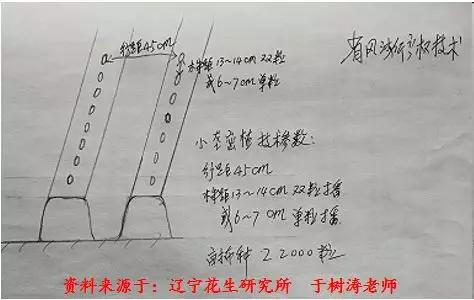 行距45cm
株距13~14cm 双粒
或6~7cm单粒
省风沙所产权技术
小垄密植技术参数:
行距45cm
株距13~14cm 双粒播
或6~7cm 单粒播
亩播种 22000粒
资料来源于：辽宁花生研究所 于树涛老师